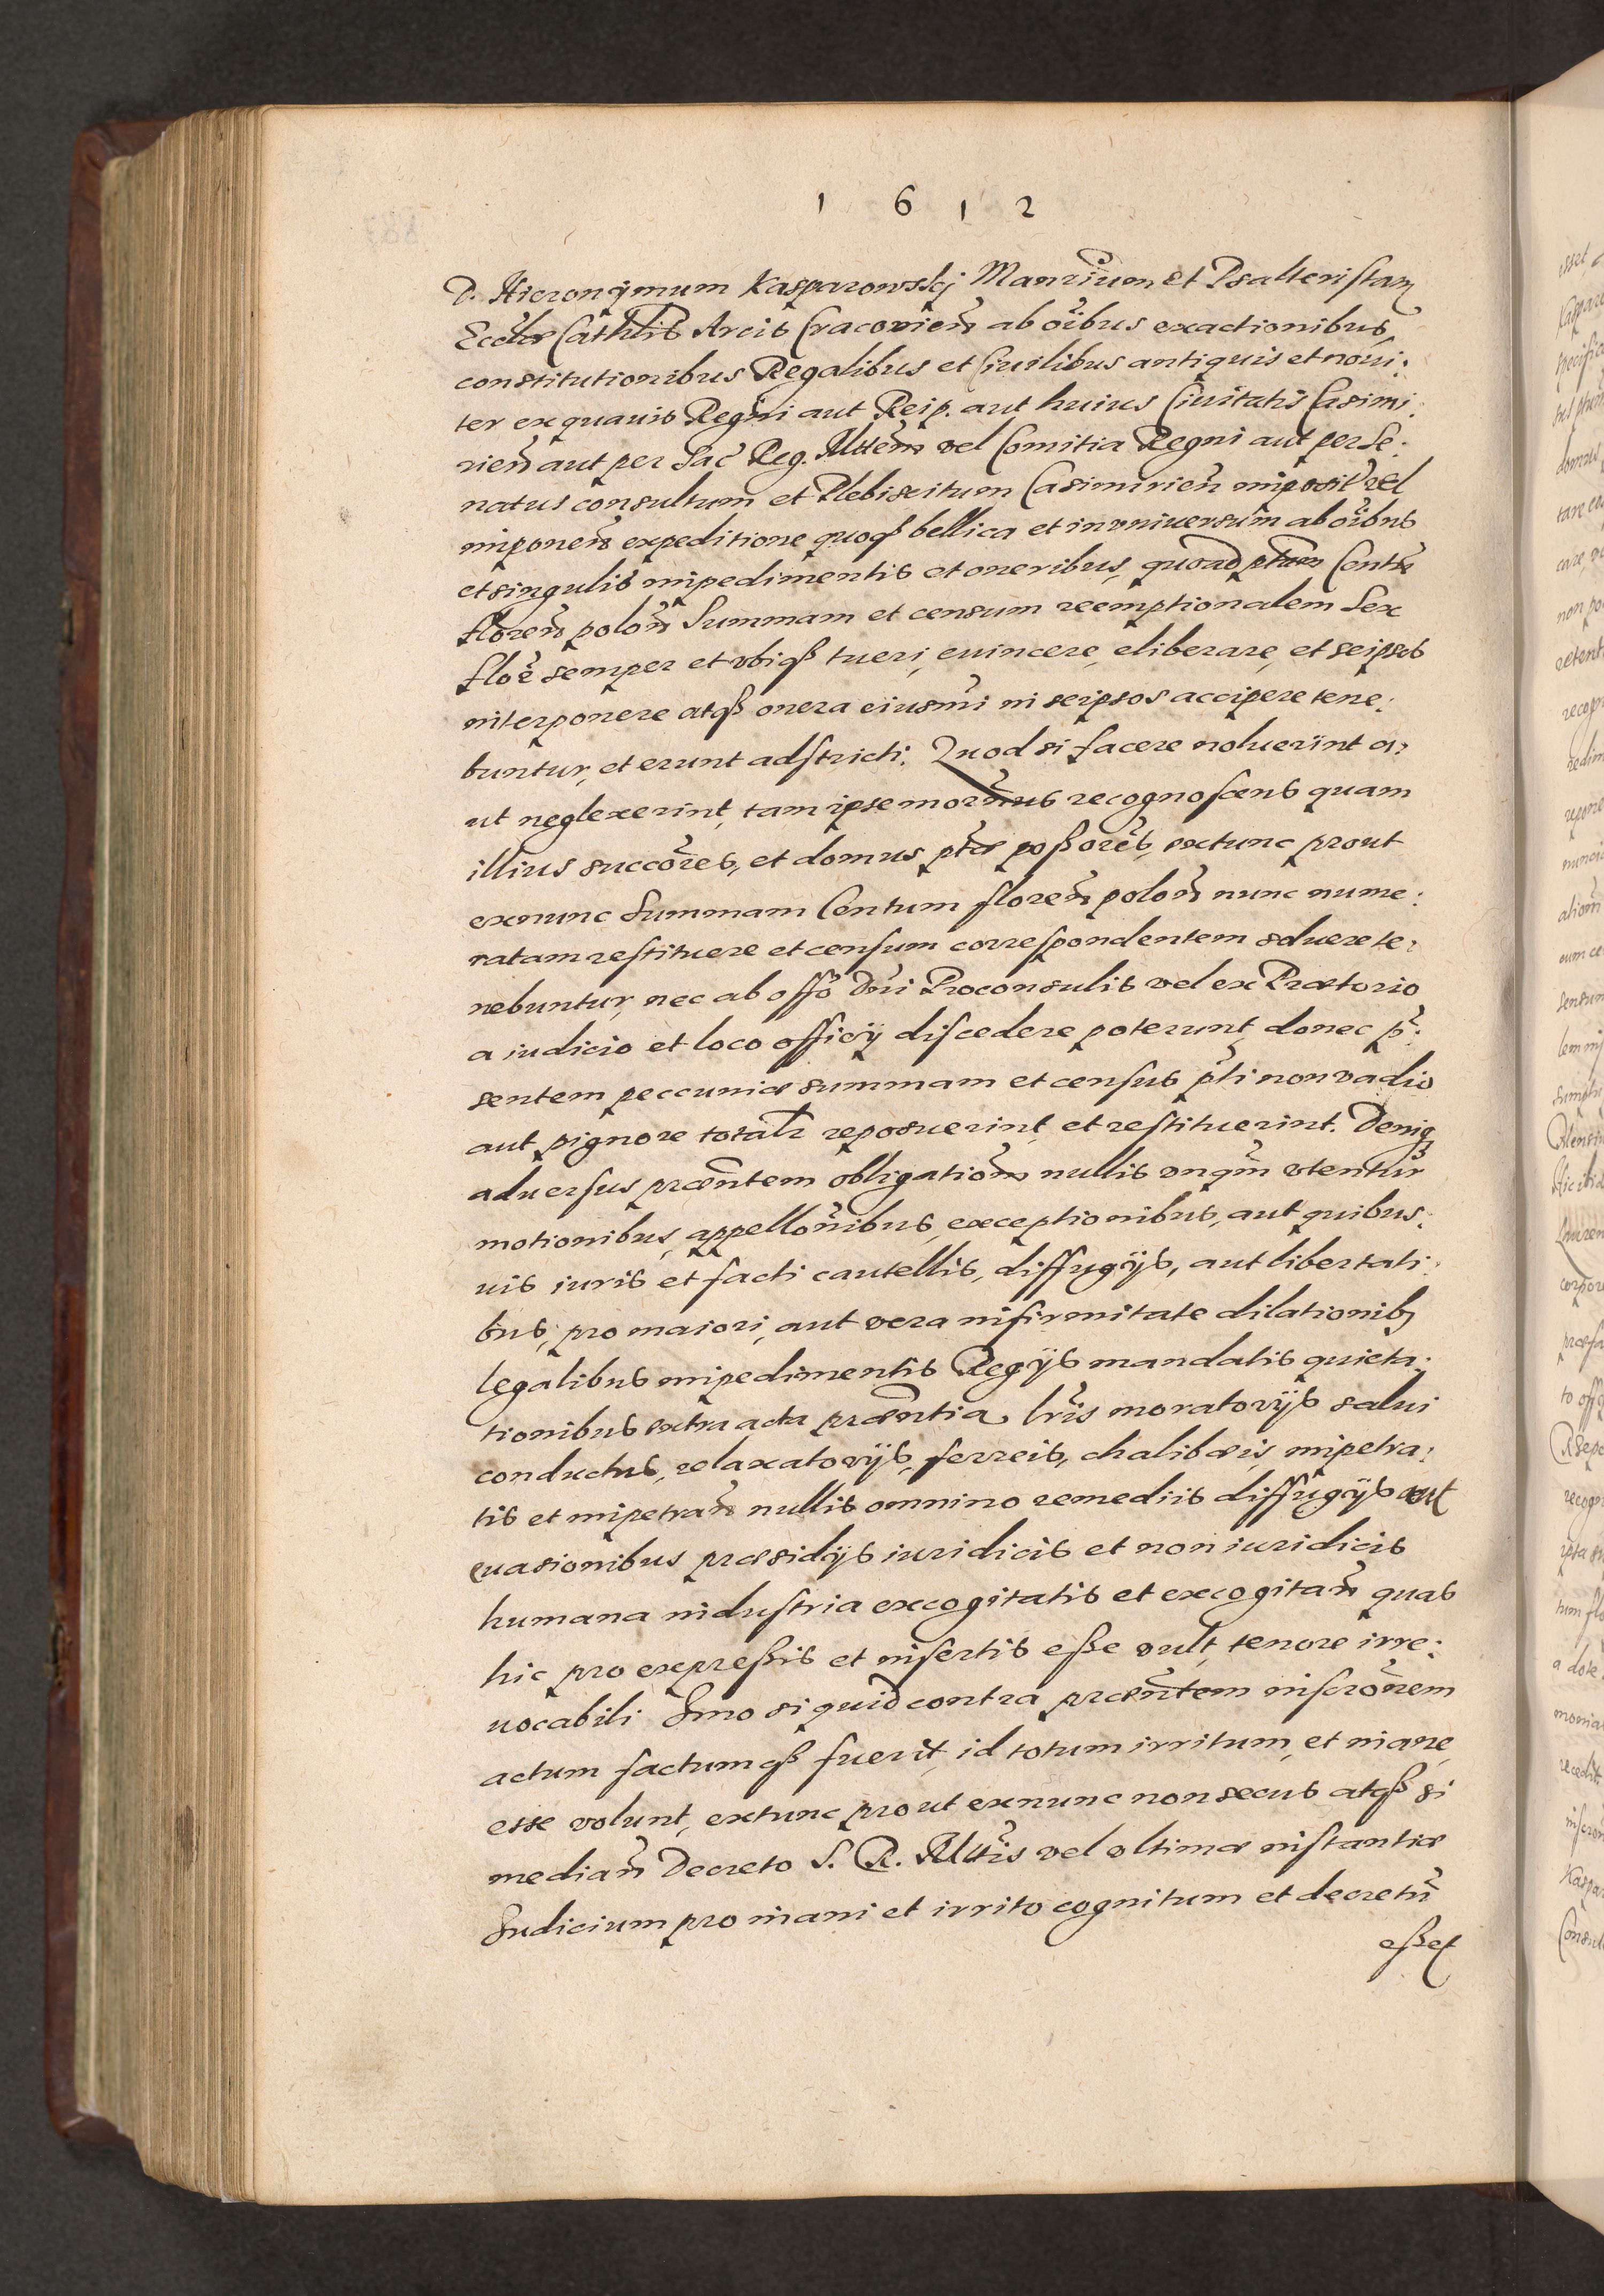 1 6 1 2
D. Hieronymum Kasparowskj Manr̃ium et Psalteristam
Eccłæ Cathłis Arcis Cracovien̄ ab oĩbus exactionibus,
constitutionibus Regalibus et Ciuilibus antiquis et noui:
ter ex quauis Regni aut Reip. aut huius Ciuitatis Casimi:
rien̄ aut per Sac̃ Reg. Mttem̄ vel Comitia Regni aut per Se:
natus consultum et Plebiscitum Casimirien̄ imposit̃ vel
imponen̄ expeditione quoqꝫ bellica et in vniuersum̄ ab oĩbus
et singulis impedimentis et oneribus, quoad ptam Centũ
floren̄ polon̄ Summam et censum reemptionalem Sex
flor̃ semper et vbiqꝫ tueri, euincere, eliberare, et seipsos
interponere atqꝫ onera eiusmi in seipsos accipere tene:
buntur, et erunt adstricti. Quod si facere noluerint a:
ut neglexerint, tam ipsemor̃nus recognoscens quam
illius succor̃es, et domus ptæ poßor̃es, extunc prout
exnunc Summam Centum floren̄ polon̄ nunc nume:
ratam restituere et censum correspondentem soluere te:
nebuntur, nec ab offõ Dn̄i Proconsulis vel ex Prætorio
a iudicio et loco officij discedere poterunt, donec p̃:
sentem peccuniæ summam et census p̃ti non vadio
aut pignore totalr̃ reposuerint et restituerint. Deniqꝫ
aduersus præn̄tem obligationem nullis vnqm̄ vtentur
motionibus, appellon̄ibus, exceptionibus, aut quibus:
uis iuris et facti cautellis, diffugijs, aut libertati:
bus, pro maiori, aut vera infirmitate dilationibꝫ
legalibus impedimentis Regijs mandatis quieta:
tionibus extra acta præn̄tia, lr̃is moratorijs salui
conductus, relaxatorijs, ferreis, chalibæis, impetra:
tis et impetran̄ nullis omnino remediis diffugijs aut
euasionibus præsidijs iuridicis et non iuridicis
humana industria excogitatis et excogitan̄ quas
hic pro expreßis et insertis eße vult, tenore irre:
uocabili Imo si quid contra præn̄tem inscron̄em
actum factumqꝫ fuerit, id totum irritum, et inane,
esse volunt, extunc prout exnunc non secus atqꝫ si
median̄ Decreto S. R. Mttis vel vltimæ instantiæ
Iudicium pro inani et irrito cognitum et decretũ
eßet